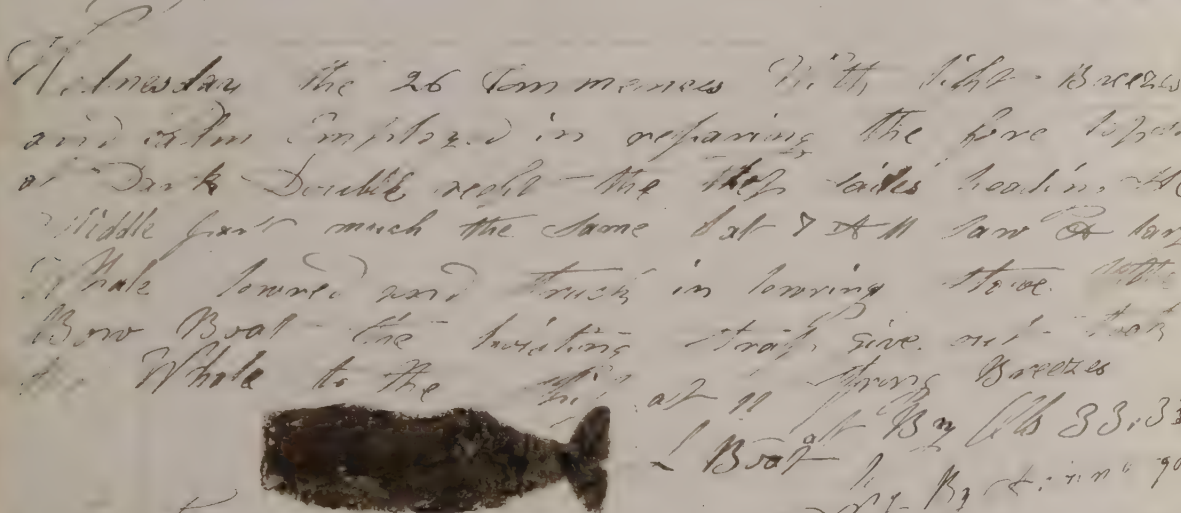 Wednesday the 26 Commences With light Breezes
and calm Employed in repairing the fore
at Dark Double reeft the tops heading
Middle part much the same at 7 AM saw a
Whale lowred and struck in lowring stove
Bow Boat the hoisting strap give out took
the Whale to the ship at 11 strong Breezes
Boat Lat By Obs 33.33
By